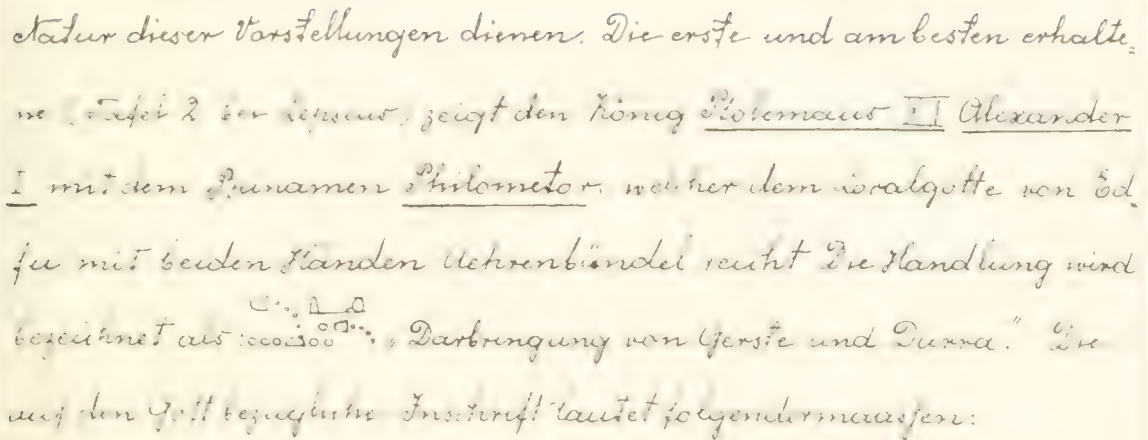 Natur dieser Vorstellungen dienen. Die erste und am besten erhalte=
ne (Tafel 2 bei Lepsius) zeigt den König Ptolemäus XI Alexander
I mit dem Beinamen Philometor, welcher dem Localgotte von Ed=
fu mit beiden Händen Aehrenbündel reicht Die Handlung wird
bezeichnet als „Darbringung von Gerste und Durra.“ Die
auf den Gott bezügliche Inschrift lautet folgendermaassen: